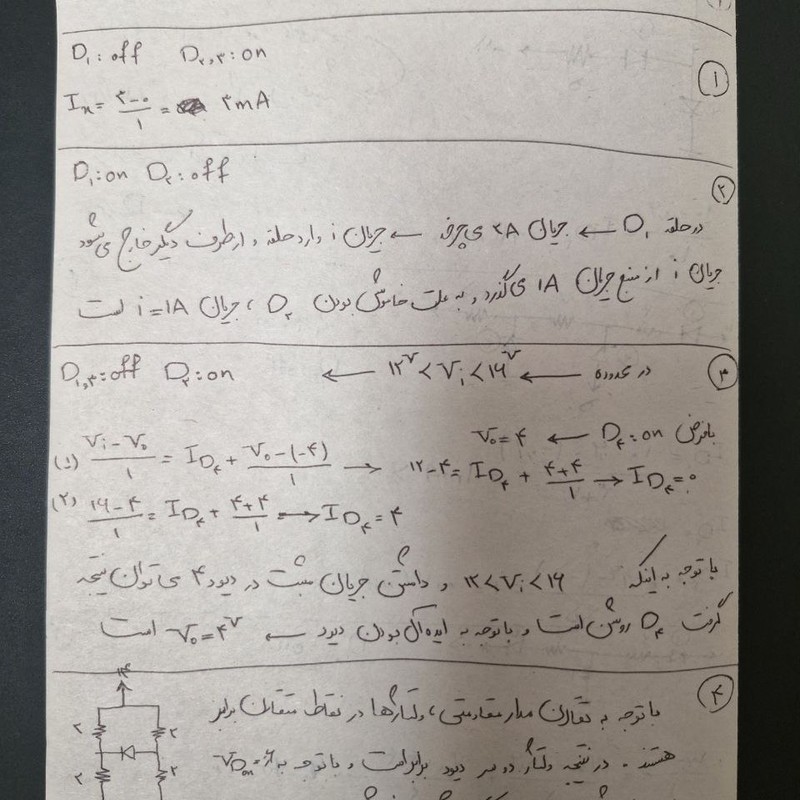 ①
D₁: off   D₂,₃: on
Iₓ = (۳-۰)/۱ = ۳mA
②
D₁: on   D₂: off
در حلقه D₁ ← جریان ۲A می‌چرخد ← جریان i وارد حلقه و از طرف دیگر خارج می‌شود
جریان i از منبع جریان ۱A می‌گذرد و به علت خاموش بودن D₂، جریان i=1A است
③
در محدوده ← ۱۲ᵛ < Vᵢ < ۱۶ᵛ ← D₁,₃: off   D₂: on
بافرض D₄: on ← V₀=۴
(۱) (Vᵢ-V₀)/۱ = I_D₄ + (V₀-(-۴))/۱ → ۱۲-۴ = I_D₄ + (۴+۴)/۱ → I_D₄=۰
(۲) (۱۶-۴)/۱ = I_D₄ + (۴+۴)/۱ → I_D₄=۴
با توجه به اینکه ۱۲<Vᵢ<۱۶ و داشتن جریان مثبت در دیود ۴ می توان نتیجه
گرفت D₄ روشن است و با توجه به ایده‌آل بودن دیود ← V₀=۴ᵛ است
④
با توجه به تقارن مدار مقاومتی، ولتاژها در نقاط متقارن برابر
هستند. در نتیجه ولتاژ دو سر دیود برابر است و با توجه به
۲ ۲
۲ ۲